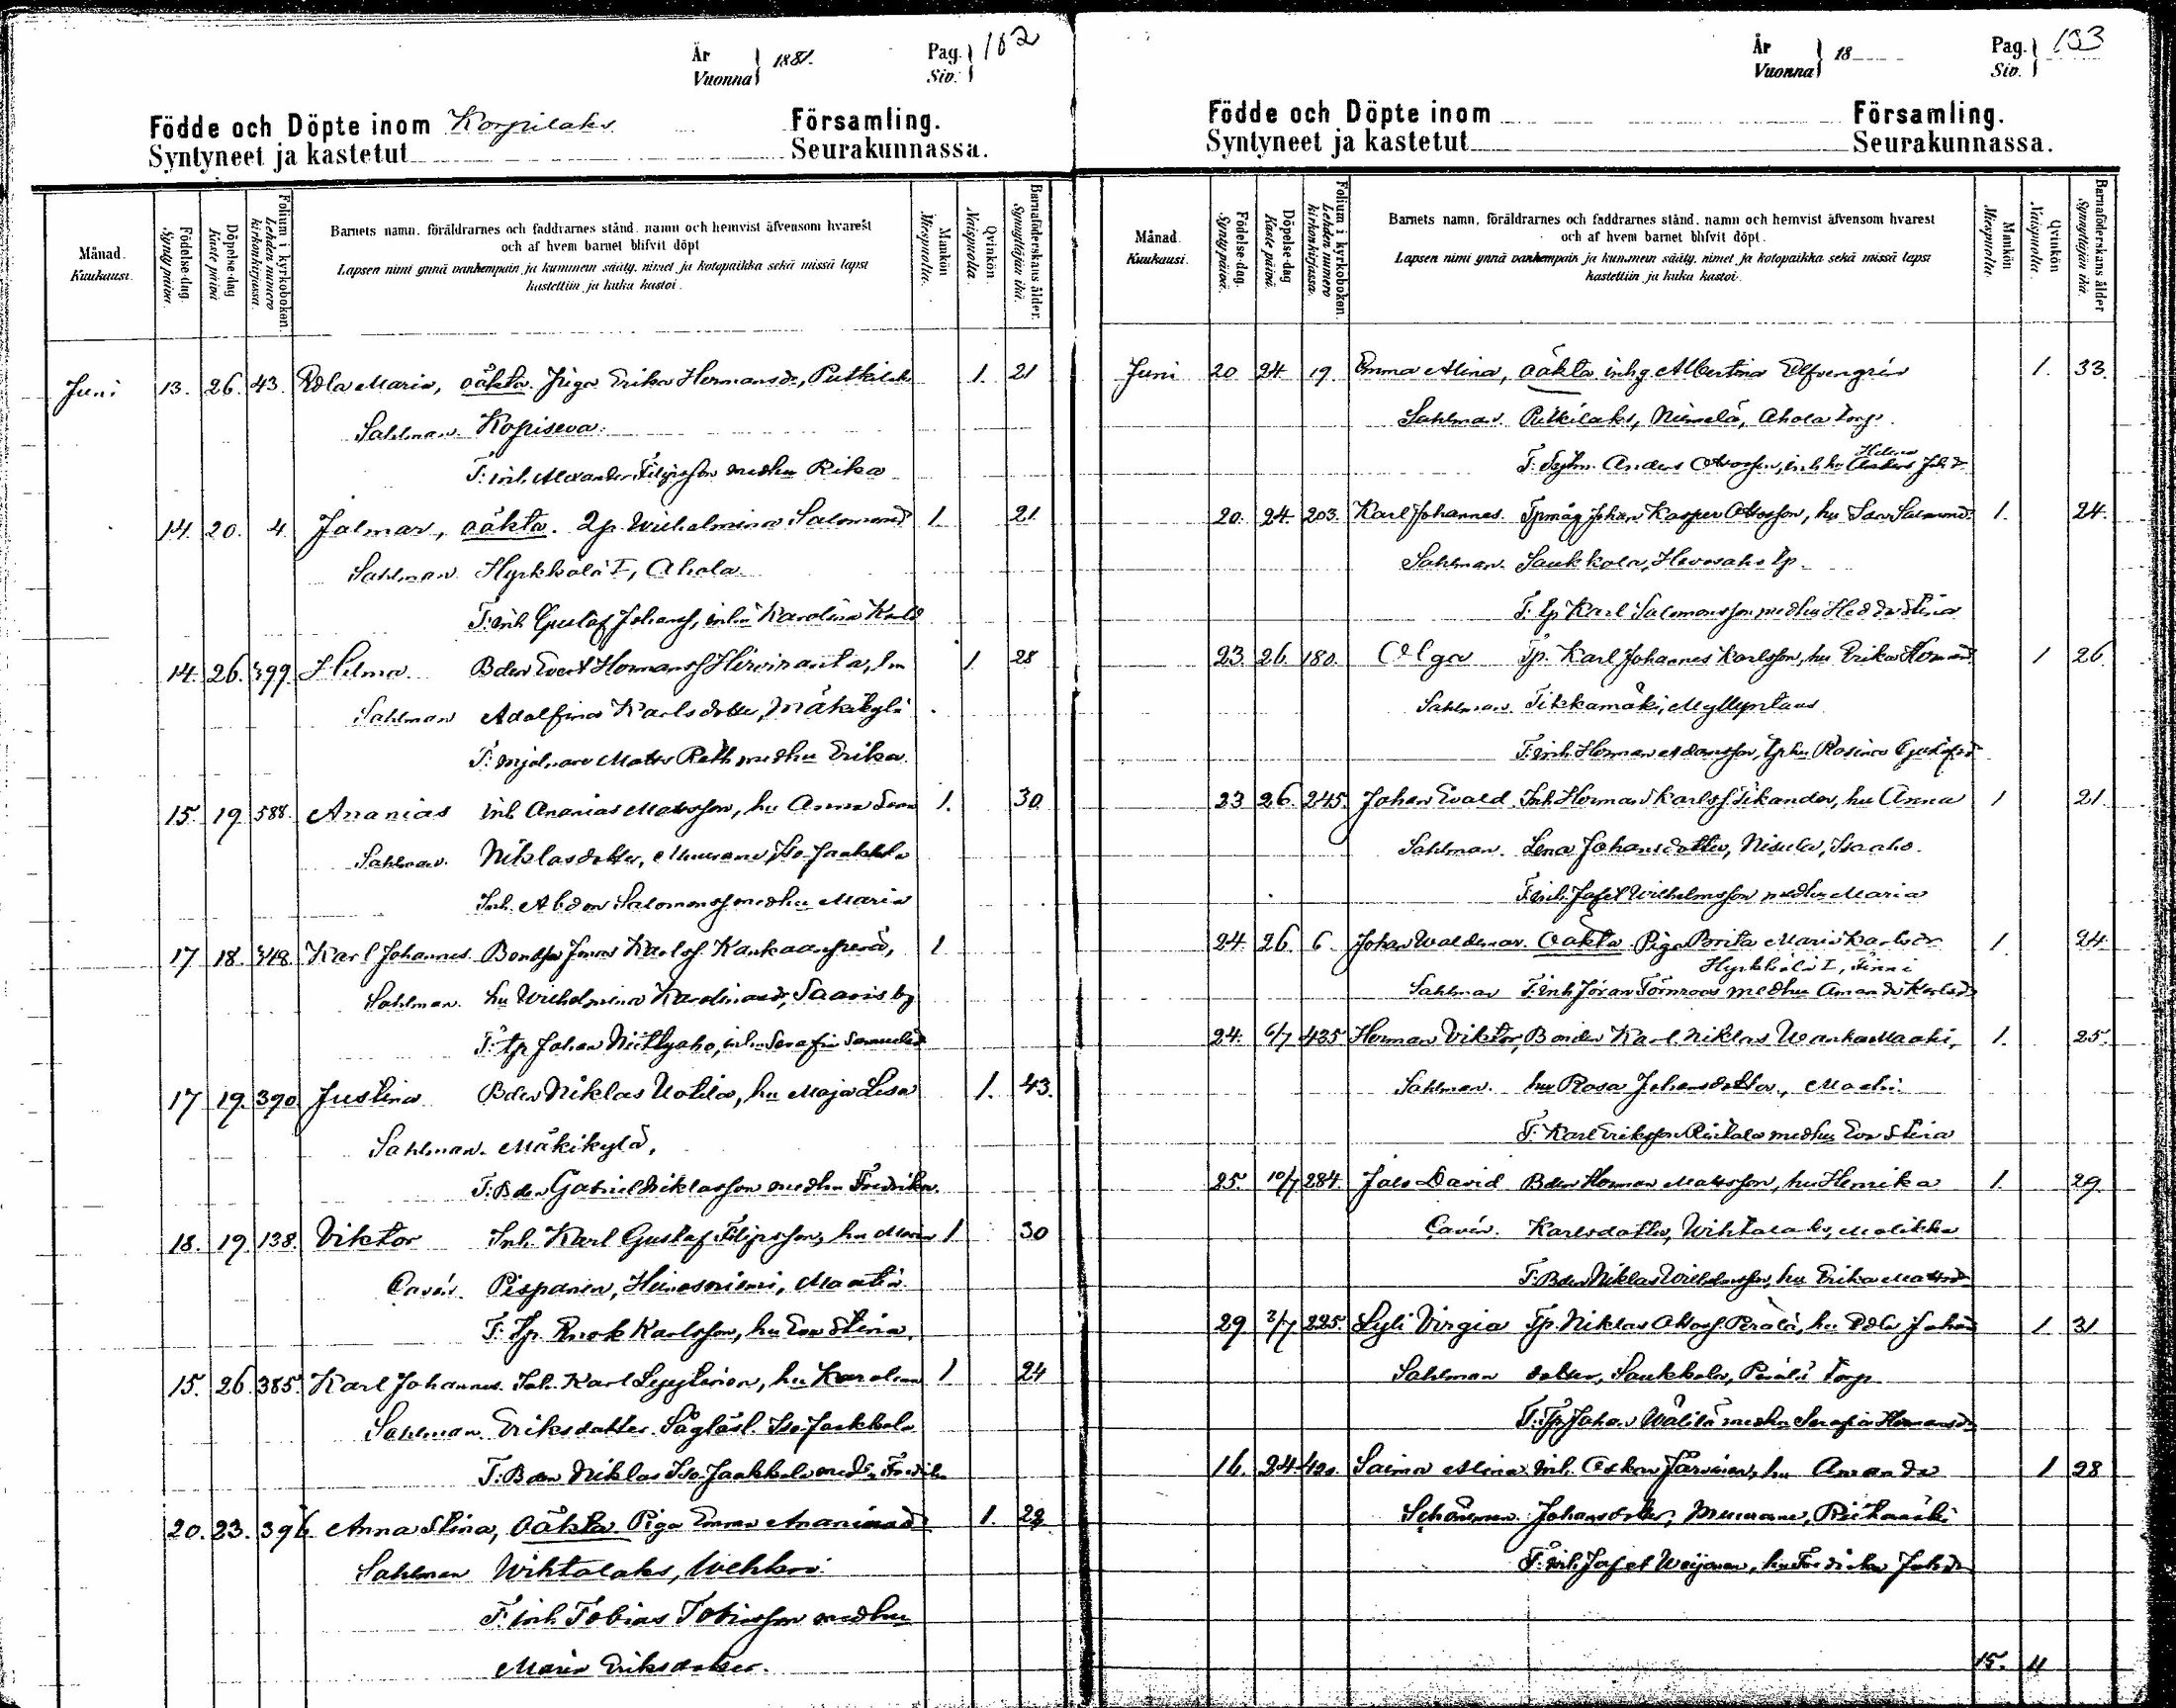 År 1881. Pag. 102
Vuonna Siv.
Födde och Döpte inom Korpilaks Församling.
Syntyneet ja kastetut Seurakunnassa.
Månad. Kuukausi.
Födelse-dag. Synty päivä.
Döpelse-dag Kaste päivä
Folium i kyrkoboken. Lehden numero kirkonkirjassa.
Barnets namn, föräldrarnes och faddrarnes stånd, namn och hemvist äfvensom hvarest
och af hvem barnet blifvit döpt
Lapsen nimi ynnä vanhempain ja kummein sääty, nimet ja kotopaikka sekä missä lapsi
kastettiin ja kuka kastoi.
Mankön Miespuolta.
Qvinkön. Naispuolta.
Barnaföderskans ålder. Synnyttäjän ikä.
Juni 13. 26. 43. Edla Maria, oäkta. Piga Erika Hermansdr, Putkilaks 1. 21
Sahlman. Kopiseva.
F: inh. Alexander Filipsson medhu Rika
14. 20. 4 Jalmar, oäkta. Wilhelmina Salomonsd 1 21
Sahlman Hyrkkälä I, Ahola
F: inh Gustaf Johanss, Karolina Karlsd
14. 26. 399. Hilma. Bden Evert Hermanss Hirviranta, hu 1. 28
Sahlman Adolfina Karlsdotter, Mäkikylä
F: mjölnare Matts Rath medhu Erika.
15. 19 588. Ananias inh. Ananias Mattsson, hu Anna 1. 30
Sahlman. Niklasdotter, Muurame, Iso-Jaakkola
Inh. Abdon Salomonss medhu Maria
17 18. 348 Karl Johannes. Bondson Jonas Karlss Kankaanperä, 1
Sahlman. hu Wilhelmina Karolina, Saaris by
F: tp Johan Niittyaho, Serafia Samuelsd
17 19. 390 Justina Bden Niklas Uotila, hu Maja Lisa 1. 43.
Sahlman. Mäkikylä,
F: Bden Gabriel Niklasson medhu Fredrika.
18. 19. 138. Viktor Inh. Karl Gustaf Filipsson, hu Maria 1 30
Cavén. Pispanen, Heinosniemi, Maatia
F: Tp. Enok Karlsson, hu Eva Stina.
15. 26. 385. Karl Johannes. Inh. Karl Lyytinen, hu Karolina 1 24
Sahlman Eriksdotter. Iso-Jaakkola
F: Bden Niklas Iso-Jaakkola med hu Fredrika
20. 23. 396. Anna Stina, oäkta. Piga Emma Ananiasd 1. 29
Sahlman Wihtalaks, Wehkoi
F: inh Tobias Tobiasson medhu
Maria Eriksdotter.
År 18 Pag. 103
Vuonna Siv.
Födde och Döpte inom Församling.
Syntyneet ja kastetut Seurakunnassa.
Månad. Kuukausi.
Födelse-dag. Synty päivä.
Döpelse-dag Kaste päivä.
Folium i kyrkoboken. Lehden numero kirkonkirjassa.
Barnets namn, föräldrarnes och faddrarnes stånd, namn och hemvist äfvensom hvarest
och af hvem barnet blifvit döpt.
Lapsen nimi ynnä vanhempain ja kummein sääty, nimet ja kotopaikka sekä missä lapsi
kastettiin ja kuka kastoi.
Mankön Miespuolta.
Qvinkön Naispuolta.
Barnaföderskans ålder Synnyttäjän ikä.
Juni 20 24 19. Emma Alina, oäkta inhg. Albertina Elfvengrén 1. 33.
Sahlman. Putkilaks, Niemelä, Ahola torp.
F: Anders Ottosson, Helena Johdr
20. 24 203. Karl Johannes Tpmåg Johan Kasper Ottosson, hu Salomonsd. 1. 24.
Sahlman. Saukkola, Hevosaho tp.
F: tp Karl Salomonsson medhu Hedda Stina
23. 26. 180. Olga Tp. Karl Johannes Karlsson, hu Erika Hermansd 1 26
Sahlman. Tikkamäki, Myllyntaus
F: inh. Herman Adamsson, tphu Rosina Gustafsd
23 26. 245. Johan Evald Inh. Herman Karlss Sikander, hu Anna 1 21.
Sahlman. Lena Johansdotter, Nisula, Isoaho.
F: inh. Jafet Wilhelmsson medhu Maria
24. 26. 6 Johan Waldemar. Oäkta Piga Brita Maria Karlsdr 1. 24
Hyrkkälä I, Finni
Sahlman F: inh Jöran Törnroos medhu Amanda Karlsdr
24. 6/7 435 Herman Viktor, Bonden Karl Niklas Wanha Maahi, 1. 25.
Sahlman. hu Rosa Johansdotter, Maahi
F: Karl Eriksson medhu Eva Stina
25. 10/7 284 Jalo David Bden Herman Mattsson, hu Henrika 1. 29.
Cavén. Karlsdotter, Wihtalaks, Malikka
F: Bden Niklas Wilhelmsson, hu Erika Mattsdr
29 2/7 225. Lyli Virgia Tp. Niklas Ottoss. Perälä, hu Edla Johans 1 31
Sahlman dotter, Saukkola, Perälä torp
F: Tp Johan Wälilä medhu Serafia Hermansdr
16. 24 420. Saima Alina inh. Oskar Järvinen, hu Amanda 1 28
Schönman. Johansdotter, Muurame, Riihimäki
F: inh. Jafet Weijonen, hu Fredrika Johdr
15. 11